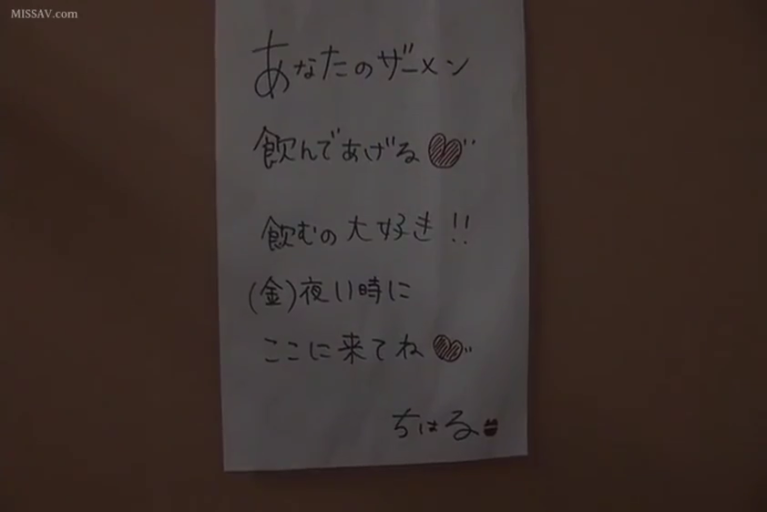 MISSAV.com
あなたのザーメン
飲んであげる♥
飲むの大好き!!
(金)夜11時に
ここに来てね♥
ちはる